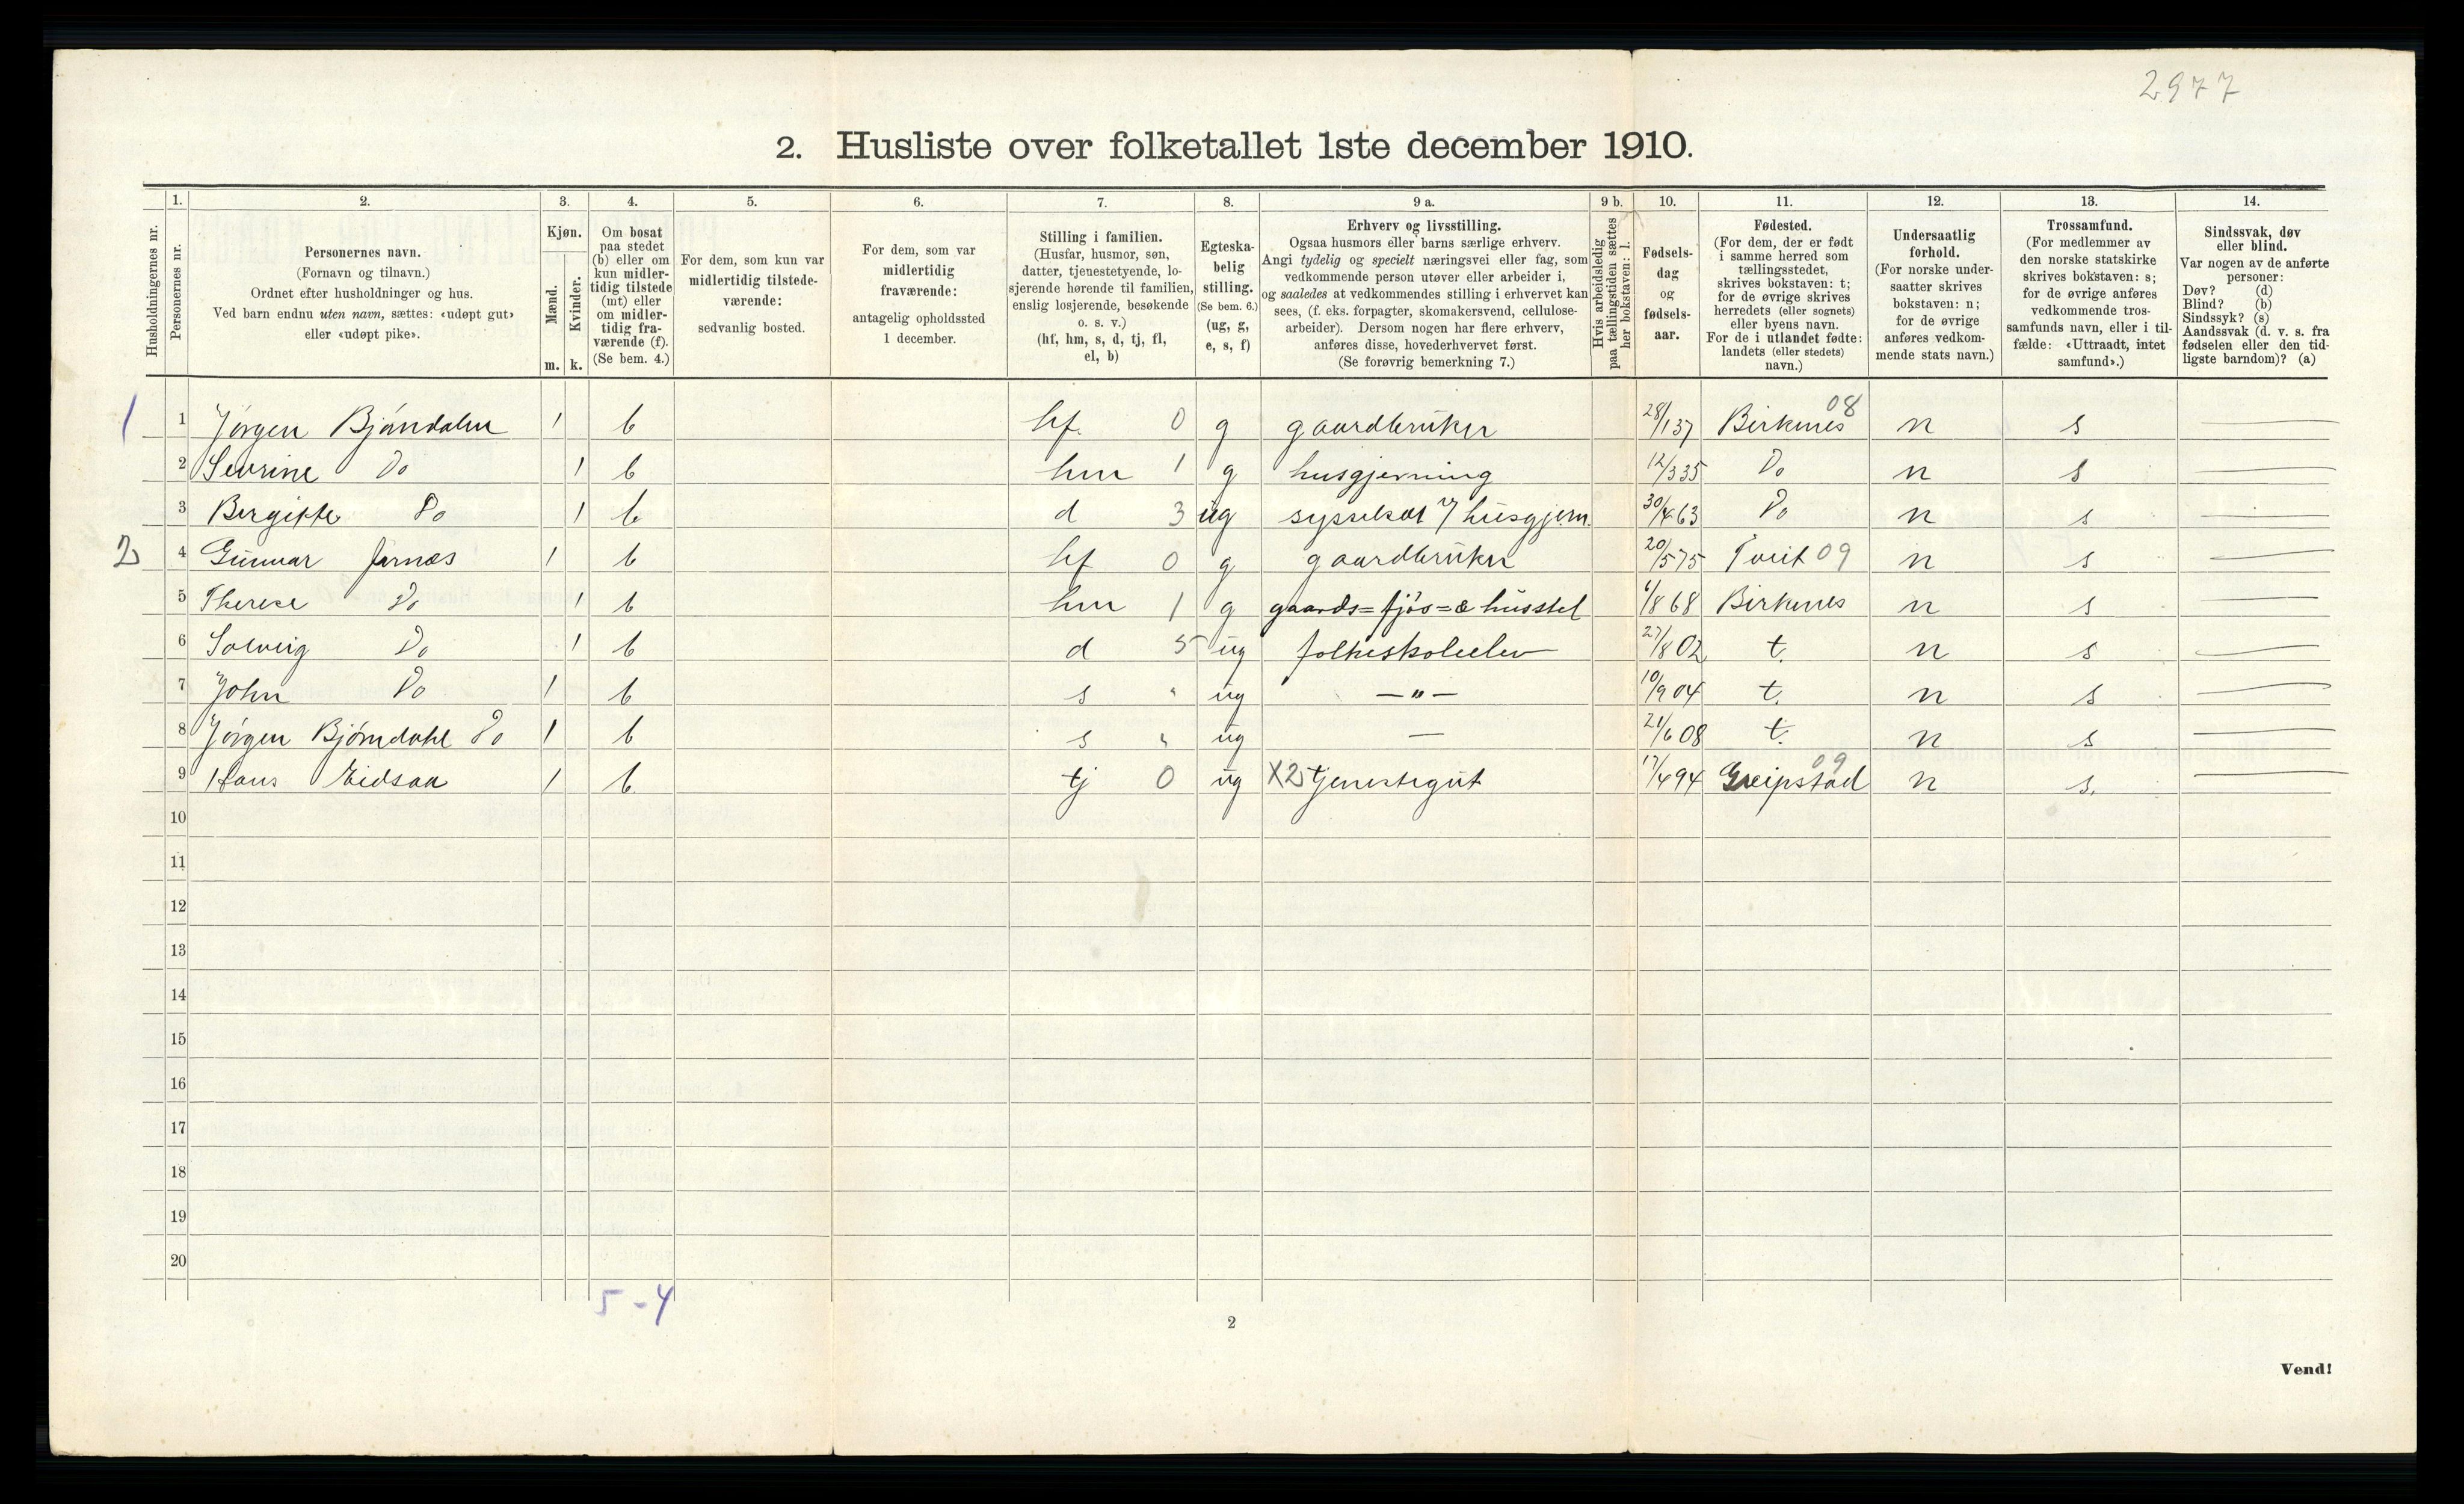 2977
2. Husliste over folketallet 1ste december 1910.
1. 2. 3. 4. 5. 6. 7. 8. 9 a. 9 b. 10. 11. 12. 13. 14.
Husholdningernes nr.
Personernes nr.
Personernes navn.
(Fornavn og tilnavn.)
Ordnet efter husholdninger og hus.
Ved barn endnu uten navn, sættes: «udøpt gut»
eller «udøpt pike».
Kjøn.
Mænd.
Kvinder.
m. k.
Om bosat
paa stedet
(b) eller om
kun midler-
tidig tilstede
(mt) eller
om midler-
tidig fra-
værende (f).
(Se bem. 4.)
For dem, som kun var
midlertidig tilstede-
værende:
sedvanlig bosted.
For dem, som var
midlertidig
fraværende:
antagelig opholdssted
1 december.
Stilling i familien.
(Husfar, husmor, søn,
datter, tjenestetyende, lo-
sjerende hørende til familien,
enslig losjerende, besøkende
o. s. v.)
(hf, hm, s, d, tj, fl,
el, b)
Egteska-
belig
stilling.
(Se bem. 6.)
(ug, g,
e, s, f)
Erhverv og livsstilling.
Ogsaa husmors eller barns særlige erhverv.
Angi tydelig og specielt næringsvei eller fag, som
vedkommende person utøver eller arbeider i,
og saaledes at vedkommendes stilling i erhvervet kan
sees, (f. eks. forpagter, skomakersvend, cellulose-
arbeider). Dersom nogen har flere erhverv,
anføres disse, hovederhvervet først.
(Se forøvrig bemerkning 7.)
Hvis arbeidsledig
paa tællingstiden sættes
her bokstaven: l.
Fødsels-
dag
og
fødsels-
aar.
Fødested.
(For dem, der er født
i samme herred som
tællingsstedet,
skrives bokstaven: t;
for de øvrige skrives
herredets (eller sognets)
eller byens navn.
For de i utlandet fødte:
landets (eller stedets)
navn.)
Undersaatlig
forhold.
(For norske under-
saatter skrives
bokstaven: n;
for de øvrige
anføres vedkom-
mende stats navn.)
Trossamfund.
(For medlemmer av
den norske statskirke
skrives bokstaven: s;
for de øvrige anføres
vedkommende tros-
samfunds navn, eller i til-
fælde: «Uttraadt, intet
samfund».)
Sindssvak, døv
eller blind.
Var nogen av de anførte
personer:
Døv? (d)
Blind? (b)
Sindssyk? (s)
Aandssvak (d. v. s. fra
fødselen eller den tid-
ligste barndom)? (a)
1 1 Jørgen Bjøndalen 1 b hf. 0 g gaardbruker 28/1 37 Birkenes 08 n s —
2 Sevrine Do 1 b hm 1 g husgjerning 12/3 35 Do n s —
3 Bergitte Do 1 b d 3 ug sysselsat / husgjern. 30/4 63 Do n s —
2 4 Gunnar 1 b hf 0 g gaardbruker 20/5 75 Tveit 09 n s —
5 Therese Do 1 b hm 1 g gaards= fjøs= & husstel 6/8 68 Birkenes n s —
6 Solveig Do 1 b d 5 ug folkeskoleelev 27/8 02 t. n s —
7 John Do 1 b s " ug — " — 10/9 04 t. n s —
8 Jørgen Bjørndahl Do 1 b s " ug — 21/6 08 t. n s —
9 Hans Eidsaa 1 b. tj 0 ug X2 tjenestegut 17/4 94 Greipstad 09 n s. —
10
11
12
13
14
15
16
17
18
19
20
5 - 4
2
Vend!